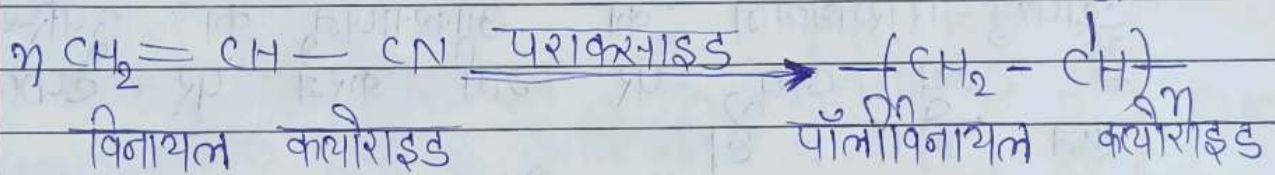 n CH₂ = CH — CN पराक्साइड → -(CH₂ - CH)-n
विनायल क्लोराइड पॉलीविनायल क्लोराइड